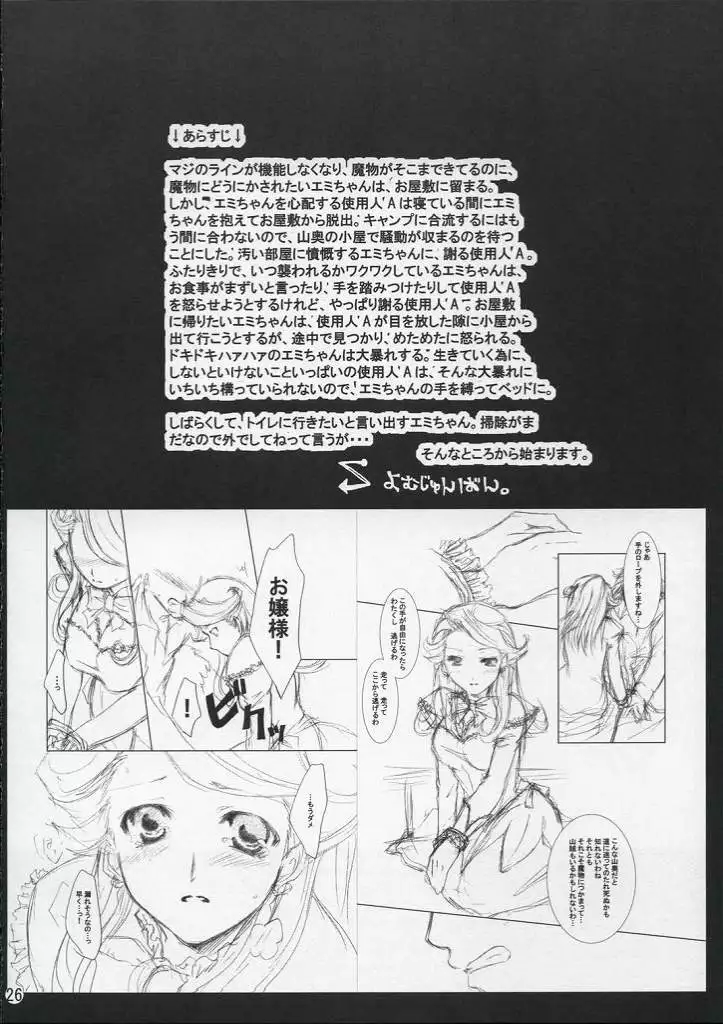 ↓あらすじ↓
マジのラインが機能しなくなり、魔物がそこまできてるのに、
魔物にどうにかされたいエミちゃんは、お屋敷に留まる。
しかし、エミちゃんを心配する使用人'Aは寝ている間にエミ
ちゃんを抱えてお屋敷から脱出。キャンプに合流するにはも
う間に合わないので、山奥の小屋で騒動が収まるのを待つ
ことにした。汚い部屋に憤慨するエミちゃんに、謝る使用人'A。
ふたりきりで、いつ襲われるかワクワクしているエミちゃんは、
お食事がまずいと言ったり、手を踏みつけたりして使用人'A
を怒らせようとするけれど、やっぱり謝る使用人'A。お屋敷
に帰りたいエミちゃんは、使用人'Aが目を放した隙に小屋から
出て行こうとするが、途中で見つかり、めためたに怒られる。
ドキドキハァハァのエミちゃんは大暴れする。生きていく為に、
しないといけないこといっぱいの使用人'Aは、そんな大暴れに
いちいち構っていられないので、エミちゃんの手を縛ってベッドに。
しばらくして、トイレに行きたいと言い出すエミちゃん。掃除がま
だなので外でしてねって言うが・・・
そんなところから始まります。
よむじゅんばん。
じゃあ
手のロープを外しますね…
この手が自由になったら
わたくし 逃げるわ
走って 走って
ここから逃げるわ
こんな山奥だと
道に迷ってのたれ死ぬかも
知れないわね
それとも
それこそ魔物につかまって…
山賊もいるかもしれないわ…
お嬢様!
!
ビクッ
…っ
…もうダメ
漏れそうなの…っ
早く…っ!
26